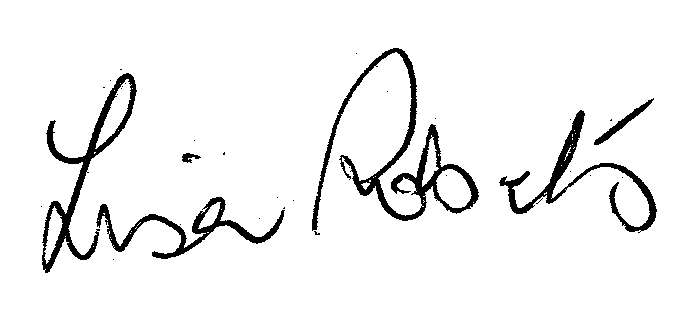 Lisa Roberts